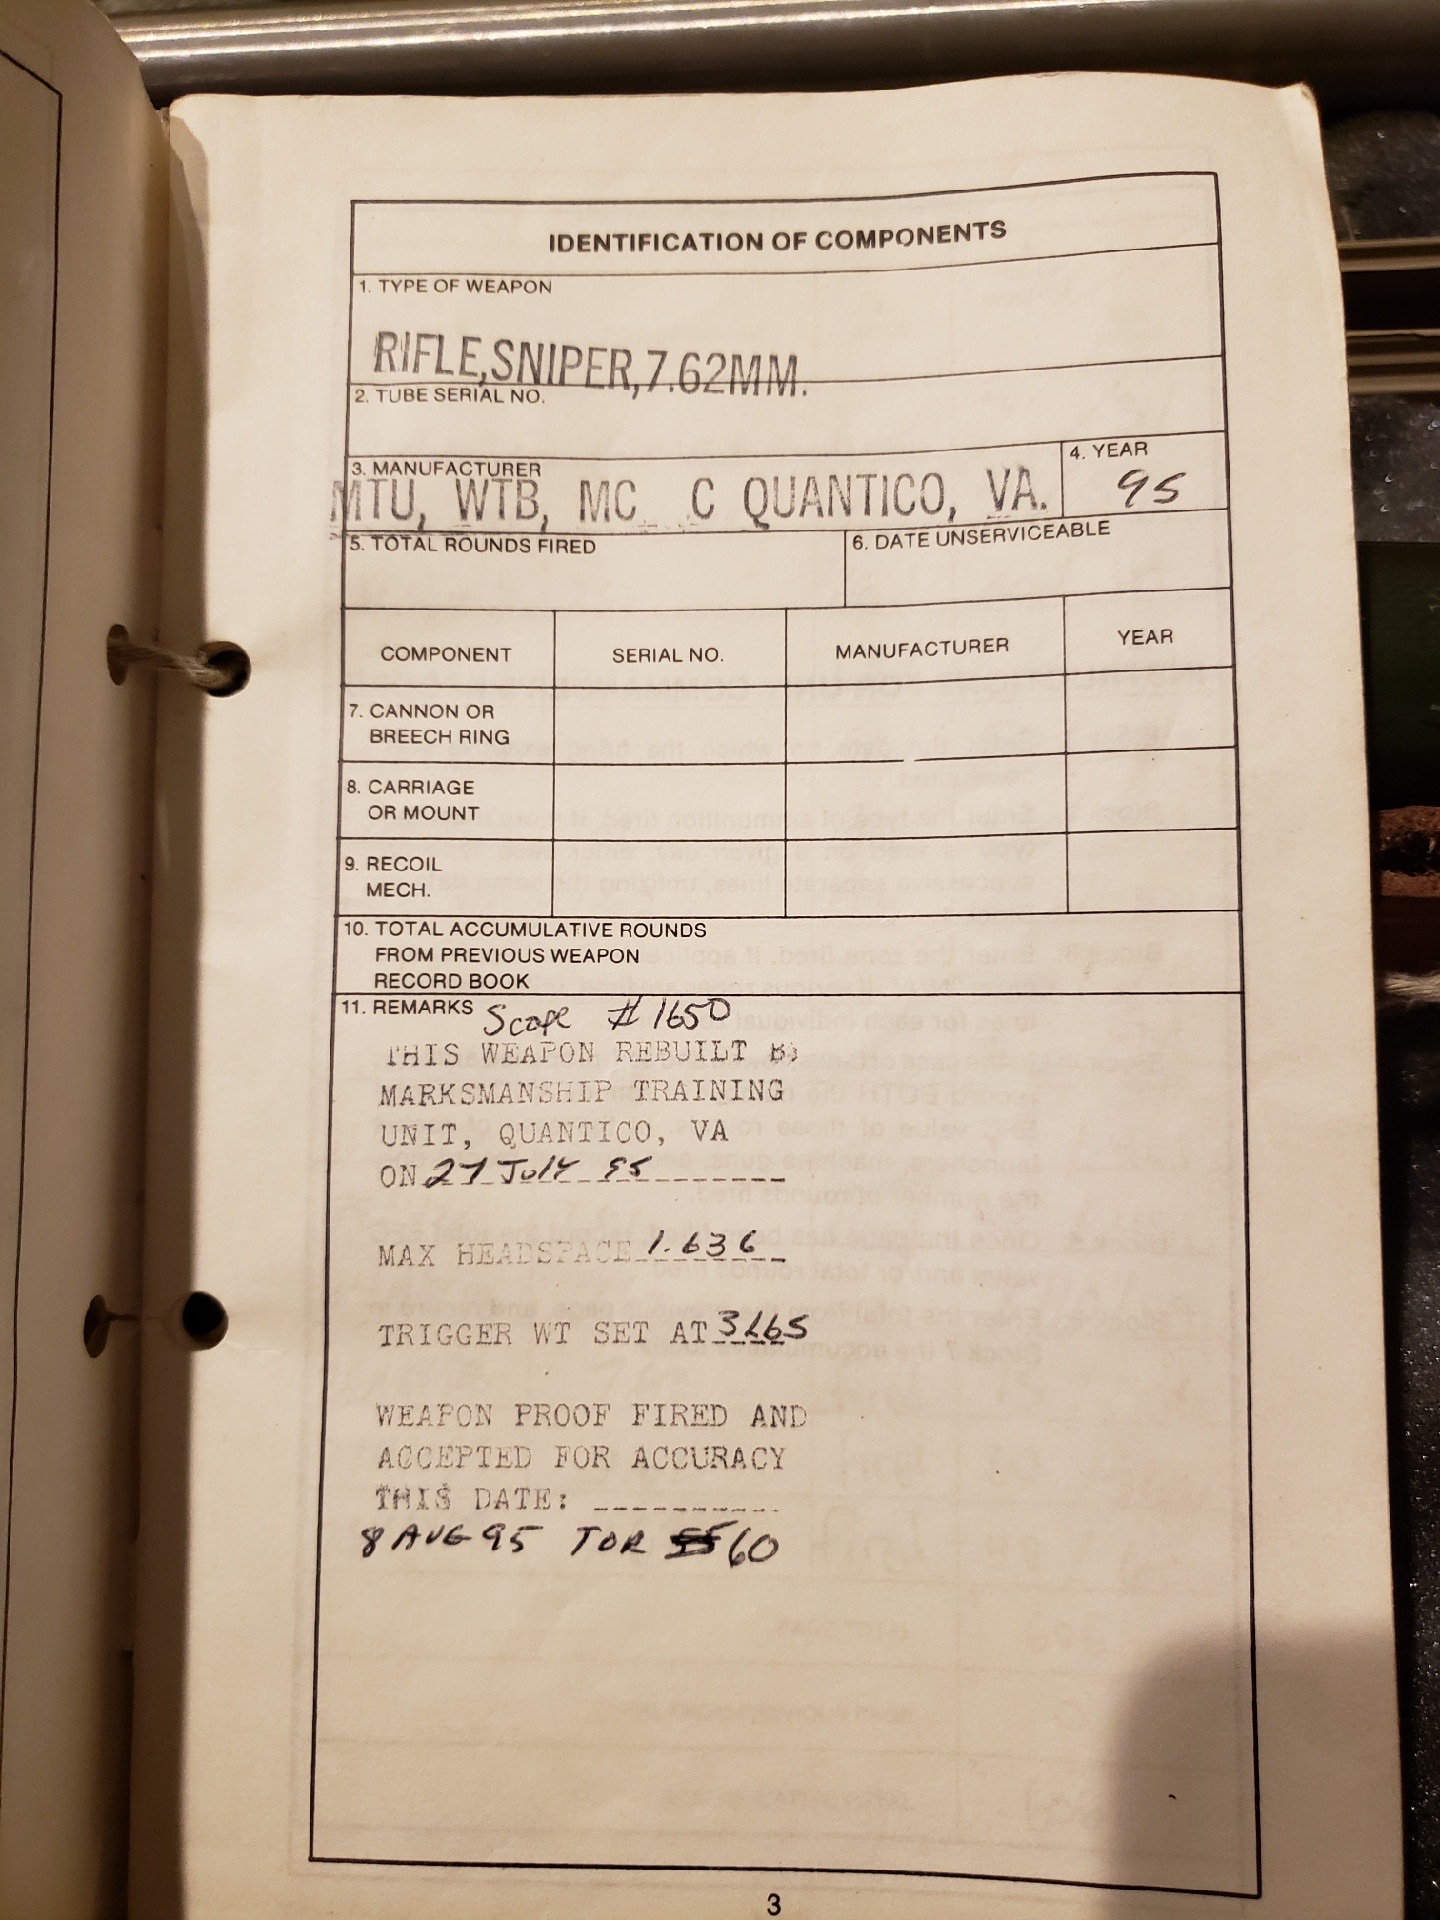 IDENTIFICATION OF COMPONENTS
1. TYPE OF WEAPON
RIFLE,SNIPER,7.62MM.
2. TUBE SERIAL NO.
3. MANUFACTURER
4. YEAR
MTU, WTB, MC C QUANTICO, VA.
95
5. TOTAL ROUNDS FIRED
6. DATE UNSERVICEABLE
COMPONENT SERIAL NO. MANUFACTURER YEAR
7. CANNON OR
BREECH RING
8. CARRIAGE
OR MOUNT
9. RECOIL
MECH.
10. TOTAL ACCUMULATIVE ROUNDS
FROM PREVIOUS WEAPON
RECORD BOOK
11. REMARKS Scope # 1650
THIS WEAPON REBUILT BY
MARKSMANSHIP TRAINING
UNIT, QUANTICO, VA
ON 27 July 95
MAX HEADSPACE 1.636
TRIGGER WT SET AT 3LBS
WEAPON PROOF FIRED AND
ACCEPTED FOR ACCURACY
THIS DATE: __________
8 AUG 95 TOR 60
3